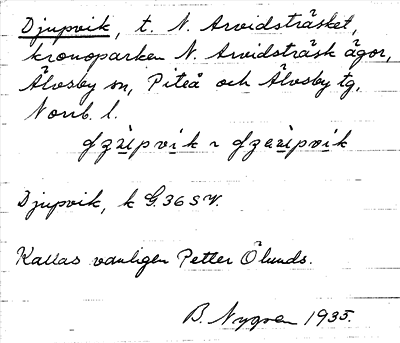 Djupvik, t. N. Arvidsträsket,
kronoparken N. Arvidsträsk ägor,
Älvsby sn, Piteå och Älvsby tg,
Norrb. l.
Djupvik, k G. 36 SV.
Kallas vanligen Petter Ölunds.
B. Nygren 1935.